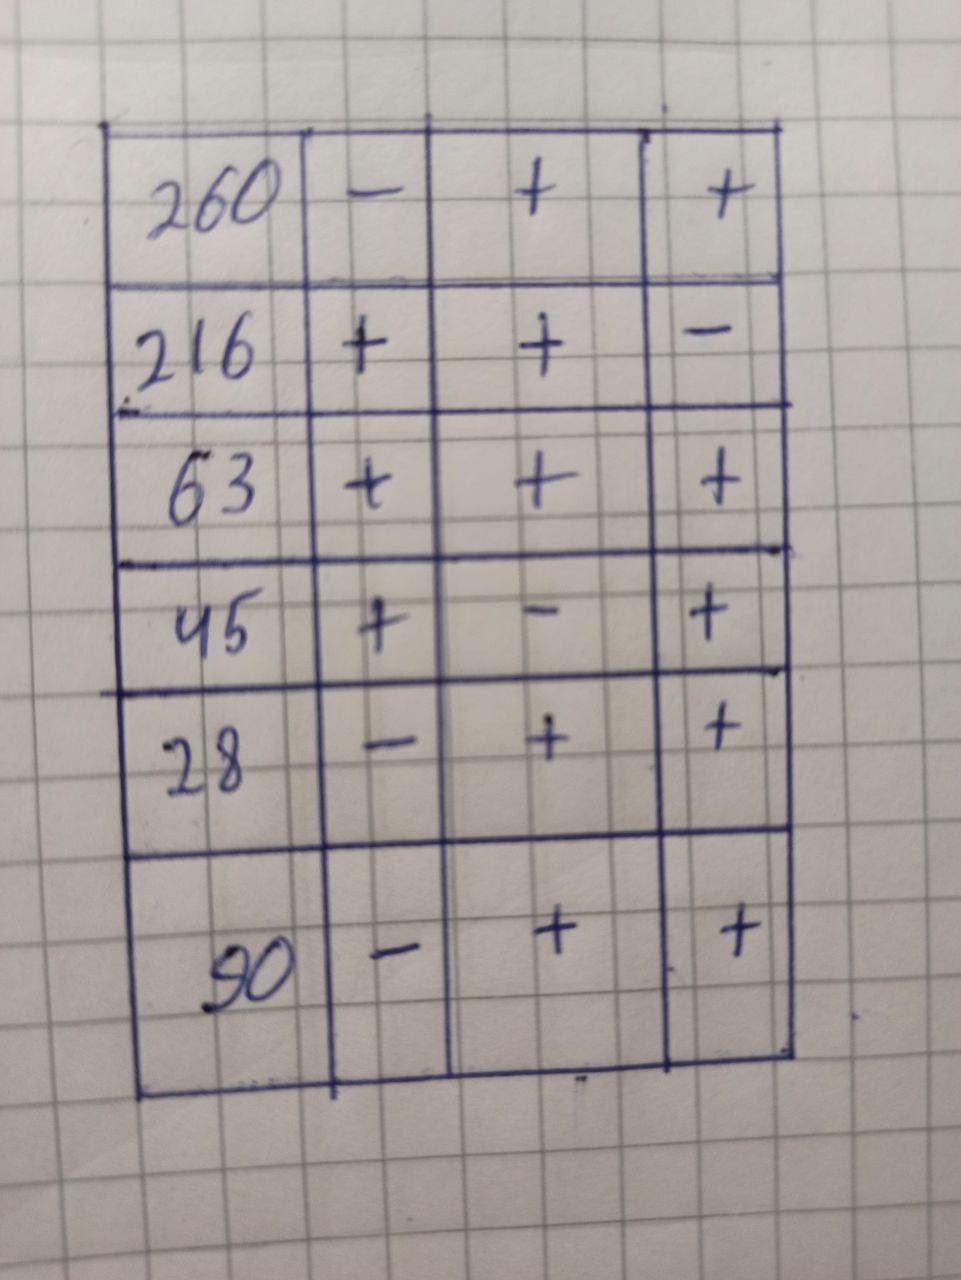 260 − + +
216 + + −
63 + + +
45 + − +
28 − + +
90 − + +